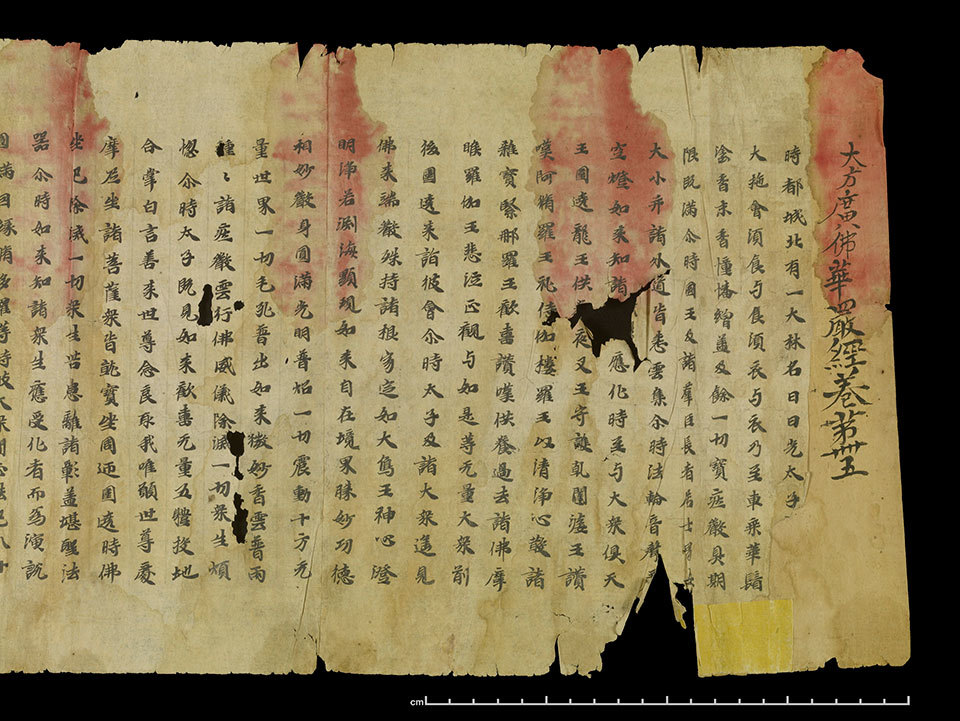 大方廣佛華嚴經卷第卌五
時都城北有一大林名曰日光太子
大施會須食与食須衣与衣乃至車乗華鬘
塗香末香幢幡繒盖及餘一切寳莊嚴具期
限既满尒時國王及諸羣臣長者居士
大小并諸水道皆悉雲集尒時法輪音聲
空燈如来知諸 應化時至与大衆俱天
王圍遶龍王供 夜叉王守護乹闥婆王讃
嘆阿脩羅王礼侍伽樓羅王以清浄心散諸
雜寳緊那羅王歡喜讃嘆供養過去諸佛摩
睺羅伽王悲泣正觀与如是等无量大衆前
後圍遶来詣彼會尒時太子及諸大衆遥見
佛来端嚴殊持諸根寂定如大鳥王神心澄
明浄若渕海顯現如来自在境界眛妙功德
相妙嚴身圓滿光明普焰一切震動十方无
量世界一切毛孔普出如来微妙香雲普雨
種〻諸莊嚴雲行佛威儀除滅一切衆生煩
惚尒時太子既見如来歡喜无量五體投地
合掌白言善来世尊念良承我唯願世尊處
摩尼坐諸菩薩衆皆就寳坐周迊圍遶時佛
坐已除滅一切衆生苦患離諸鄣盖堪聖法
器尒時如来知諸衆生應受化者而為演說
圓滿因縁脩多羅